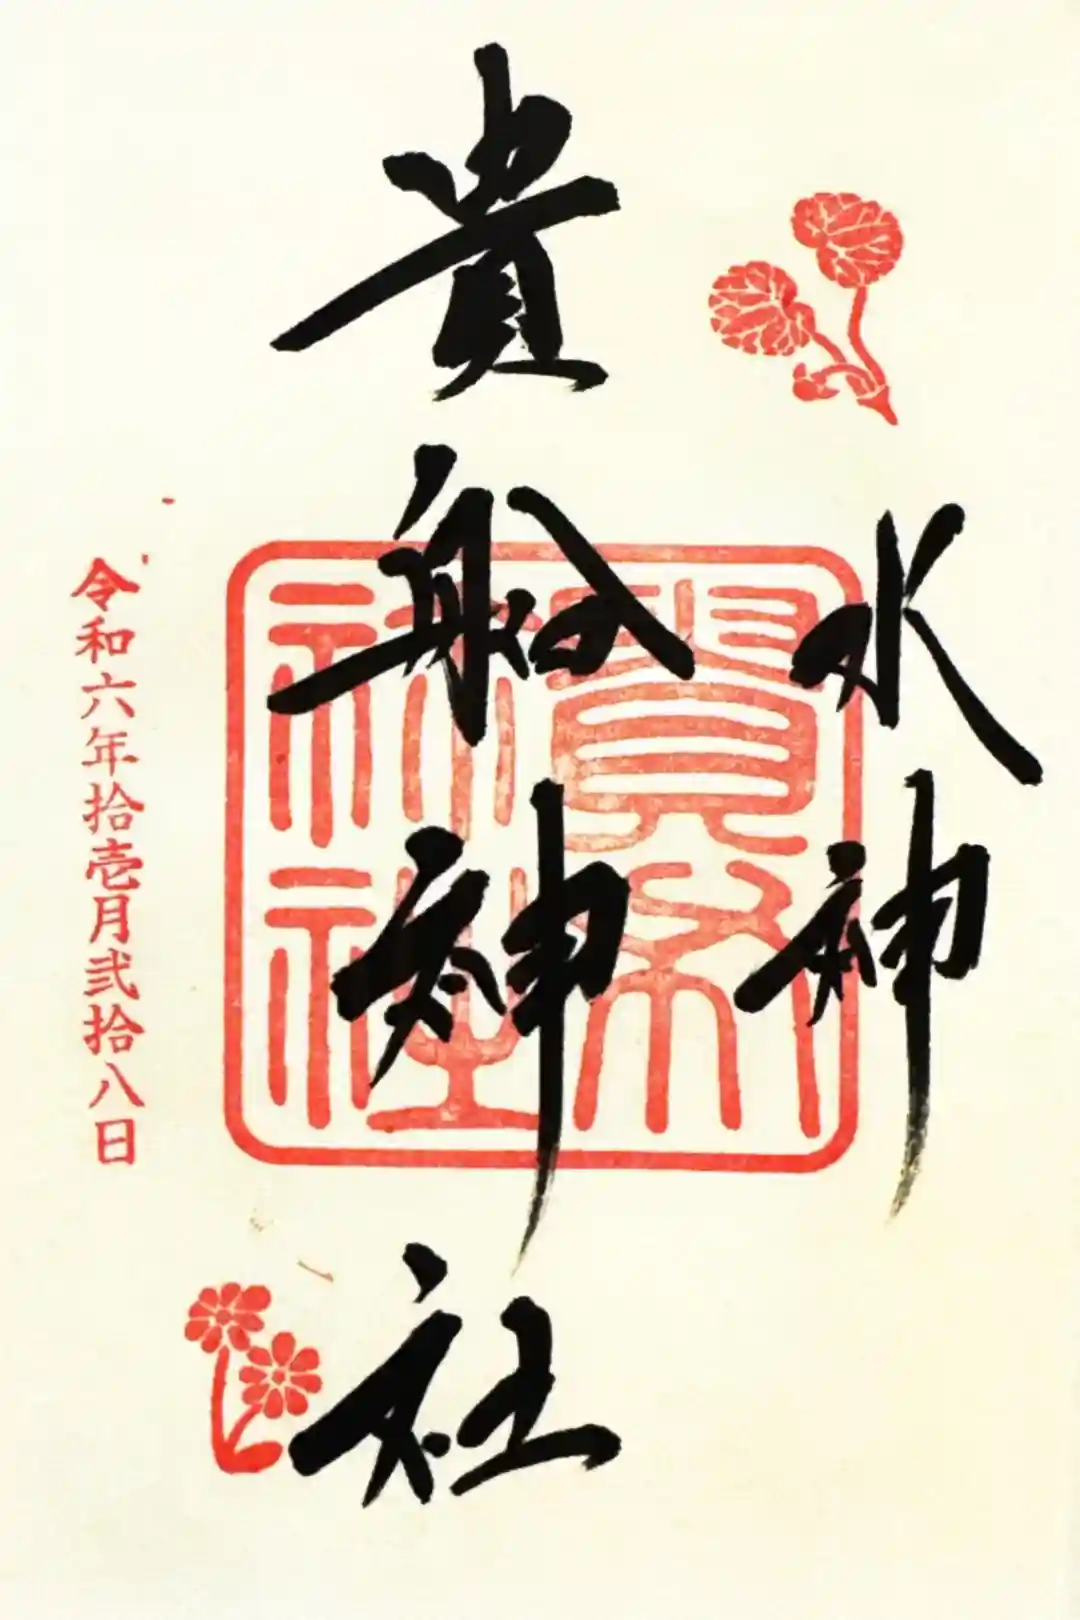 水神
貴船神社
貴船
神社
令和六年拾壱月弐拾八日